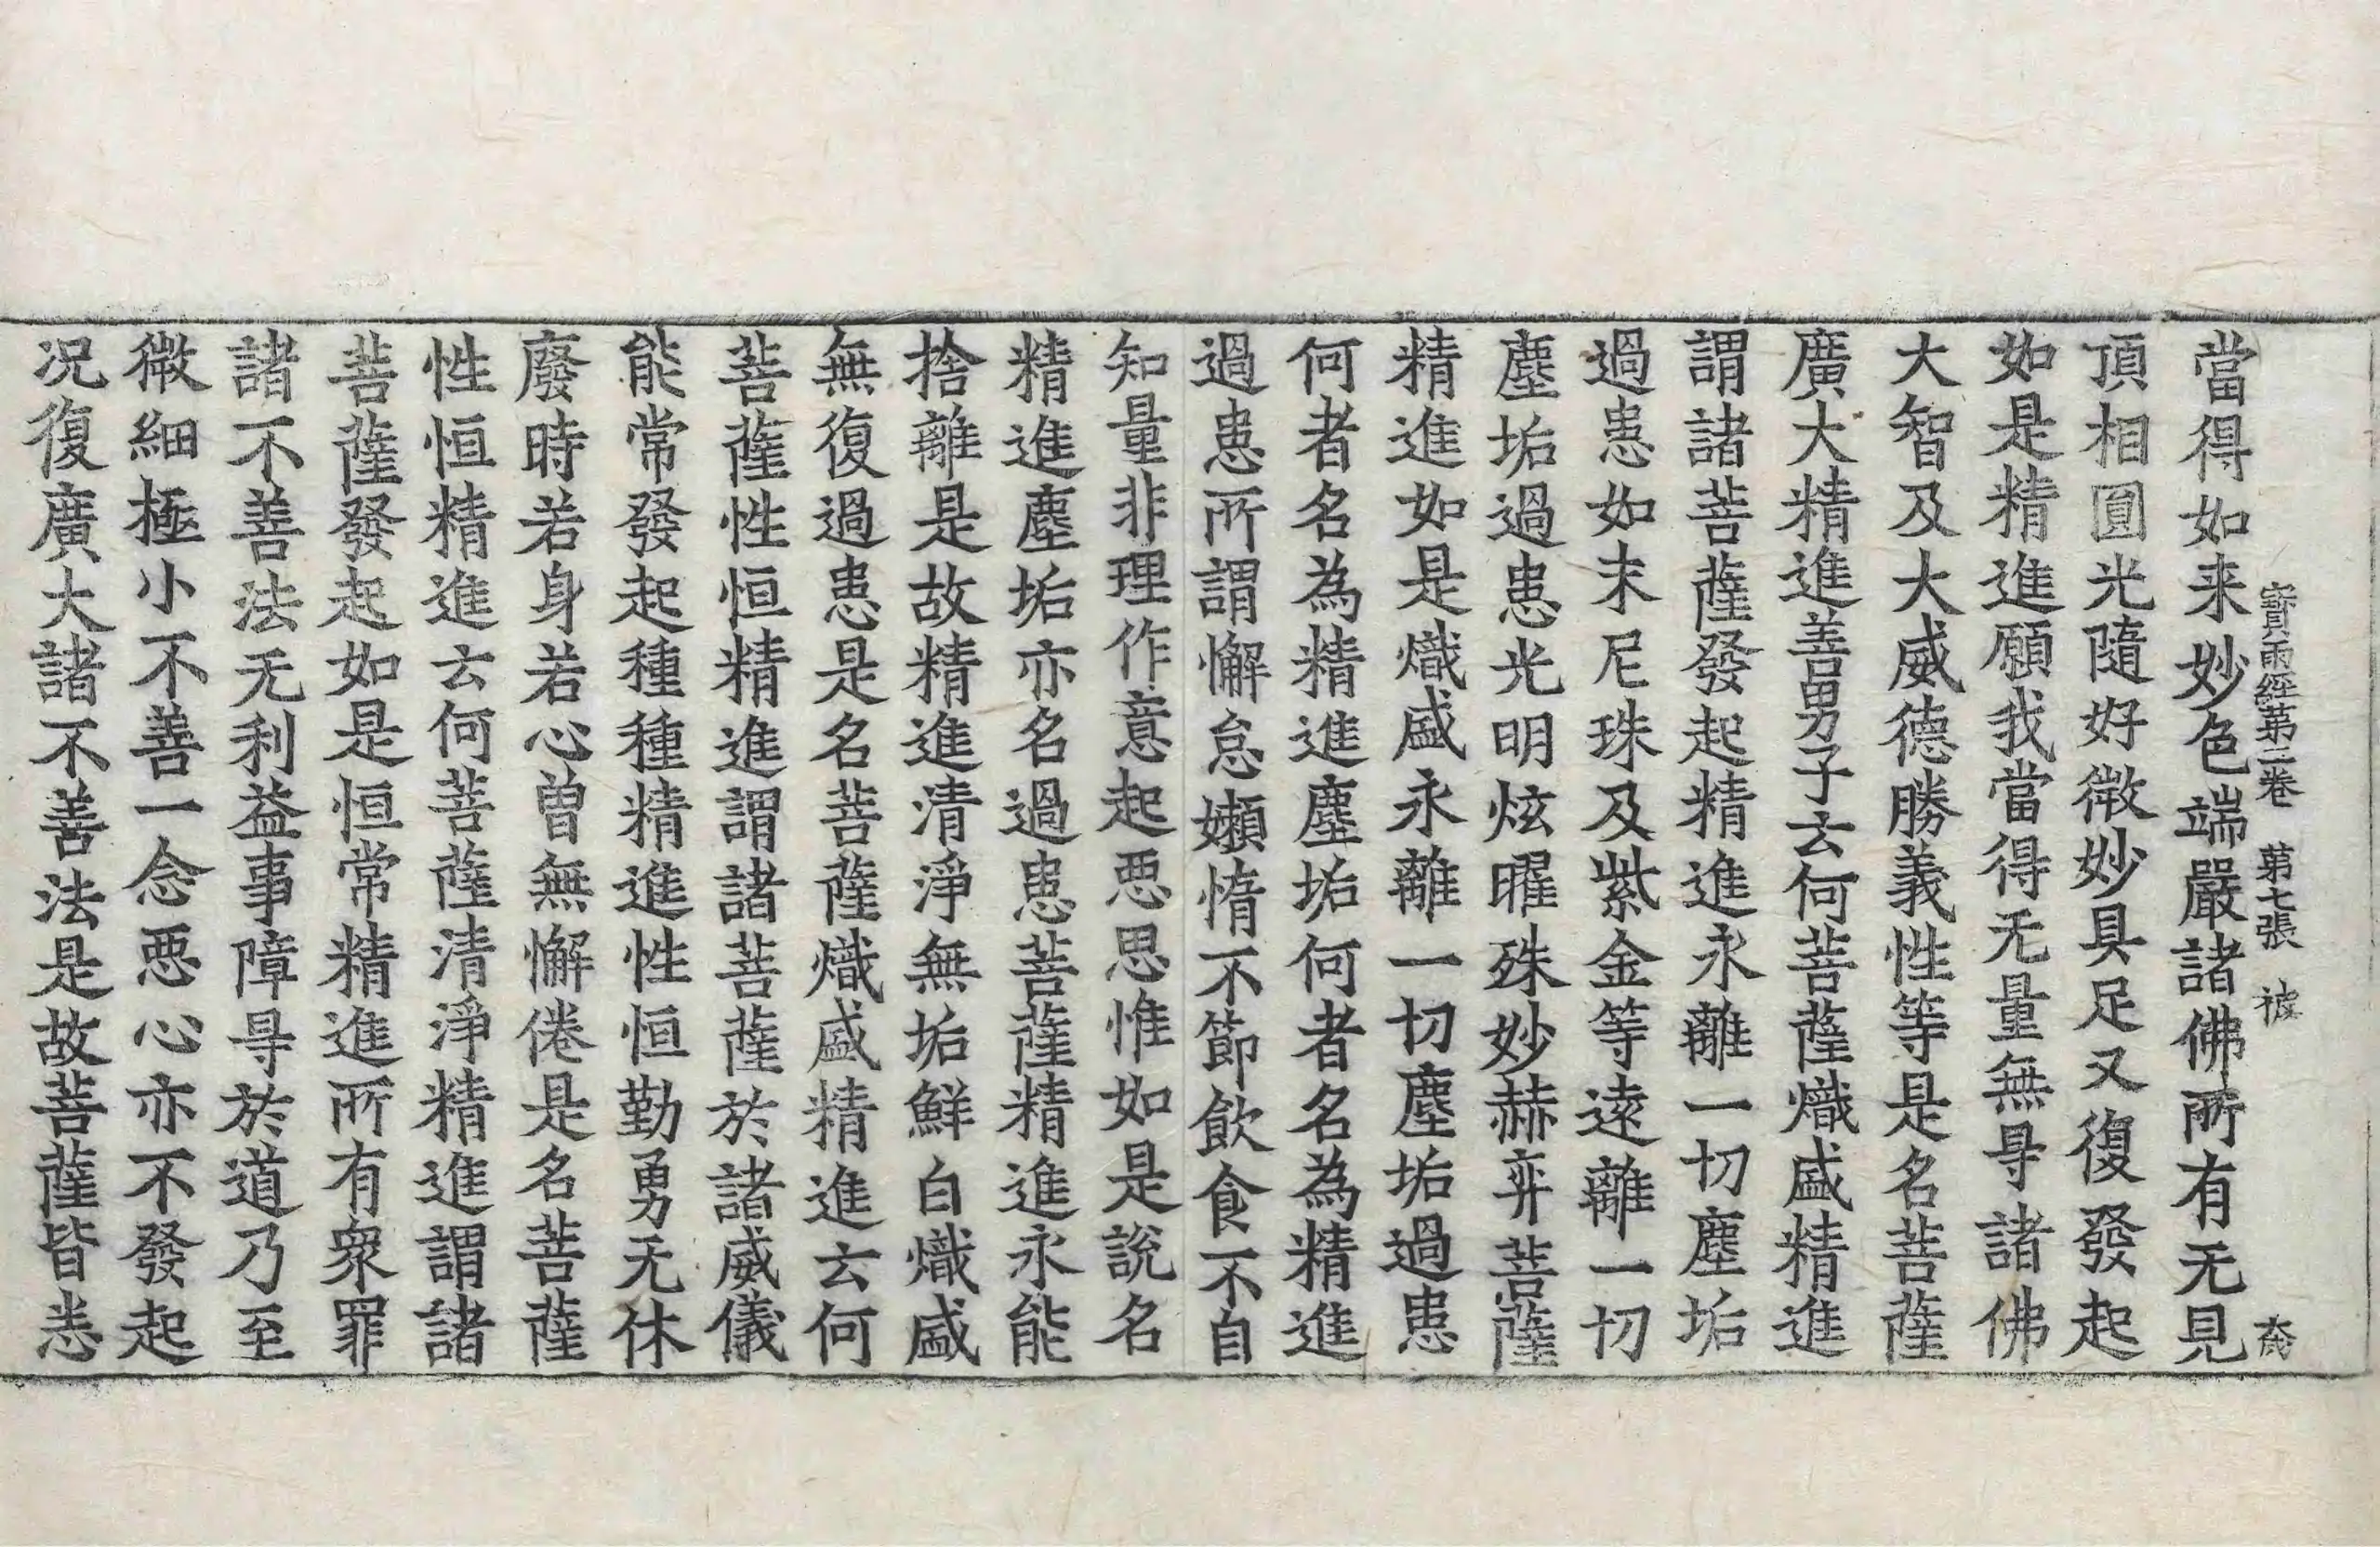 寶雨經第二卷　第七張　被
當得如来妙色端嚴諸佛所有无見
頂相圓光隨好微妙具足又復發起
如是精進願我當得无量無㝵諸佛
大智及大威德勝義性等是名菩薩
廣大精進善男子云何菩薩熾盛精進
謂諸菩薩發起精進永離一切塵垢
過患如末尼珠及紫金等遠離一切
塵垢過患光明炫曜殊妙赫弈菩薩
精進如是熾盛永離一切塵垢過患
何者名為精進塵垢何者名為精進
過患所謂懈怠嬾惰不節飲食不自
知量非理作意起悪思惟如是說名
精進塵垢亦名過患菩薩精進永能
捨離是故精進清淨無垢鮮白熾盛
無復過患是名菩薩熾盛精進云何
菩薩性恒精進謂諸菩薩於諸威儀
能常發起種種精進性恒勤勇无休
廢時若身若心曽無懈倦是名菩薩
性恒精進云何菩薩清淨精進謂諸
菩薩發起如是恒常精進所有衆罪
諸不善法无利益事障㝵於道乃至
微細極小不善一念悪心亦不發起
况復廣大諸不善法是故菩薩皆悉